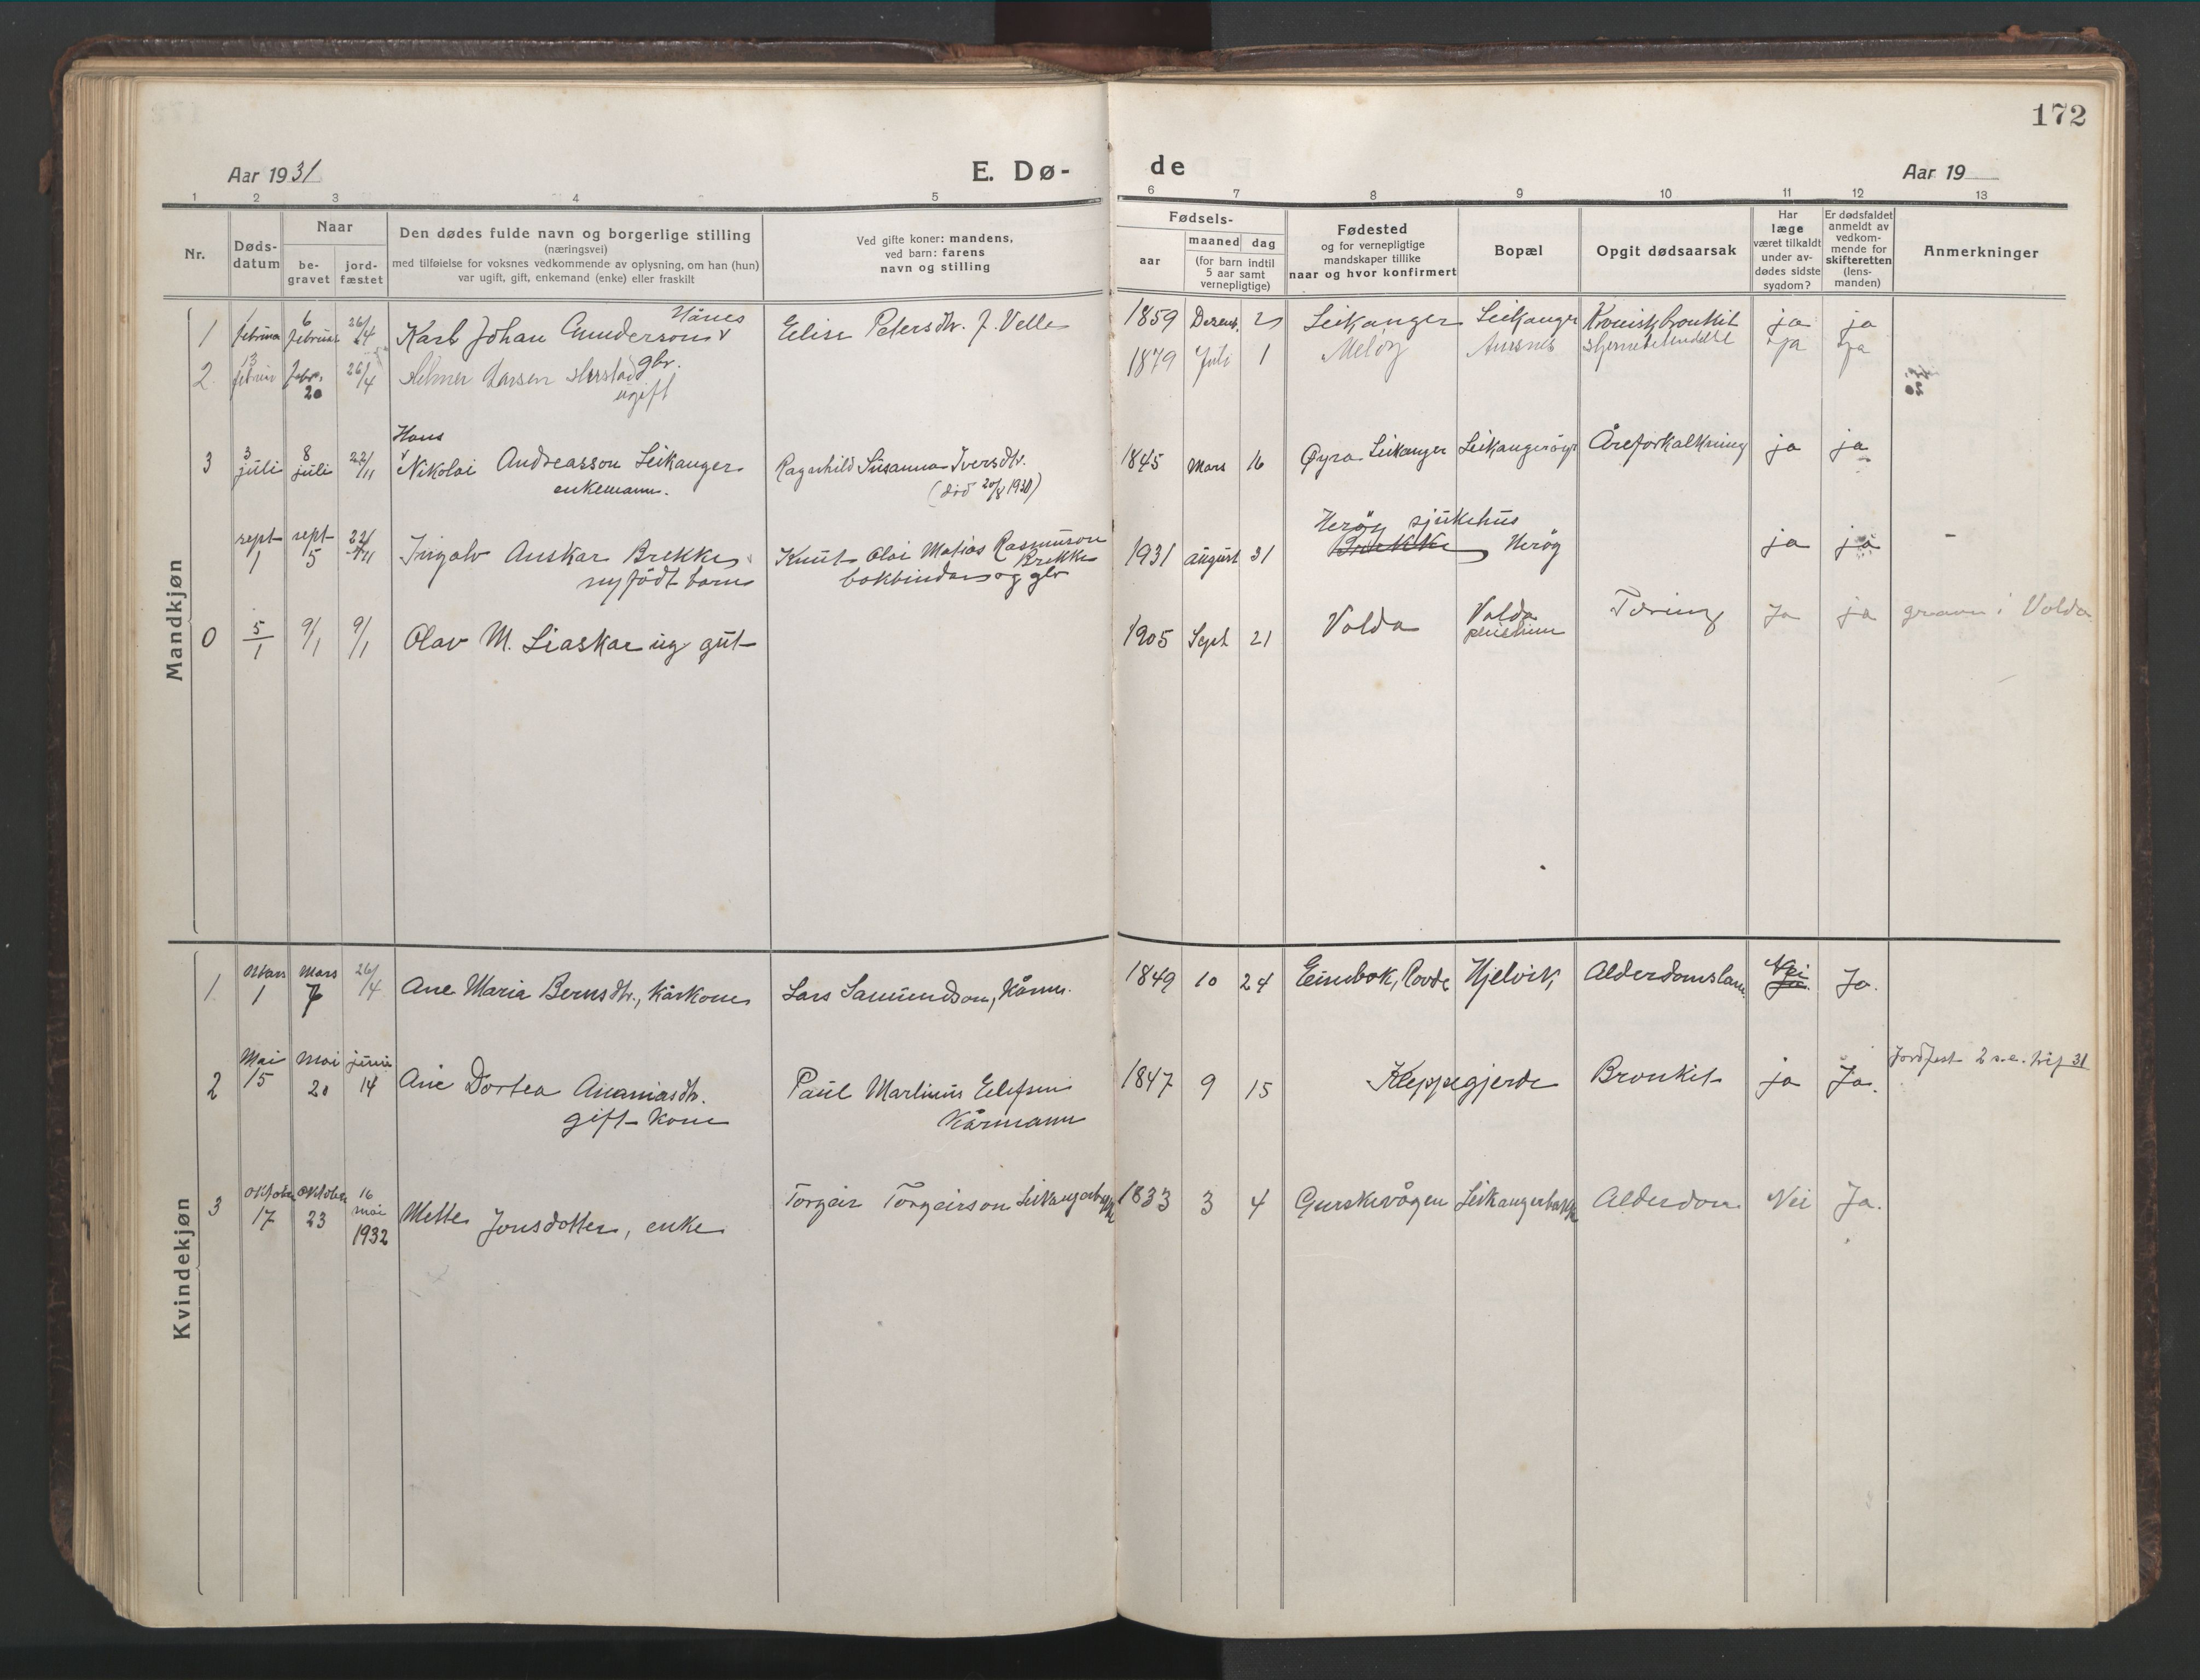 172
Aar 1931 E. Dø- de Aar 19
1 2 3 4 5 6 7 8 9 10 11 12 13
Nr.
Døds-
datum
Naar
be-
gravet
jord-
fæstet
Den dødes fulde navn og borgerlige stilling
(næringsvei)
med tilføielse for voksnes vedkommende av oplysning, om han (hun)
var ugift, gift, enkemand (enke) eller fraskilt
Ved gifte koner: mandens,
ved barn: farens
navn og stilling
Fødsels-
aar
maaned dag
(for barn indtil
5 aar samt
vernepligtige)
Fødested
og for vernepligtige
mandskaper tillike
naar og hvor konfirmert
Bopæl
Opgit dødsaarsak
Har
læge
været tilkaldt
under av-
dødes sidste
sygdom?
Er dødsfaldet
anmeldt av
vedkom-
mende for
skifteretten
(lens-
manden)
Anmerkninger
Mandkjøn
1 1 februar 6 februar 26/4 Karl Johan Gunderson Elise Petersdtr. f. Velle 1859 Dezemb. 21 Leikanger Leikanger Kronisk bronkit ja ja
2 13 februar febr. 20 26/4 Helmer Larsen gbr. 1879 Juli 1 Meløy Aursnes ja ja
ugift
Hans
3 3 juli 8 juli 22/11 Nikolai Andreasson Leikanger Ragnhild Susanna Iversdtr. 1845 Mars 16 Øyra Leikanger Leikangerøyr Åreforkalkning ja ja
enkemann. (død 20/8 1930)
Herøy sjukehus
sept 1 sept 5 22/11 Ingolv Anskar Brekke Knut Olai Matias Rasmuson Brekke 1931 august 31 Brekke Herøy ja ja -
nyfødt barn bokbindar og gbr
0 5/1 9/1 9/1 Olav M. Liaskar ug gut 1905 Sept 21 Volda Volda pleiehim Tæring Ja ja graven i Volda
Kvindekjøn
1 Mars 1 Mars 7 26/4 Ane Maria Bernsdtr., kårkone Lars Samundson, Kårm. 1849 10 24 Eimbok, Rovde Hjelvik, Alderdomslam. Nei Ja. Ja.
2 Mai 15 Mai 20 juni 14 Ane Dortea Ananiasdtr. Paul Martinus Elefsen 1847 9 15 Kleppegjerde Bronkit ja Ja. Jordfest 2 s.e. trif 31
gift kone Kårmann
3 oktober 17 oktober 23 16 mai 1932 Mette Jonsdotter, enke Torgeir Torgeirson Leikangerbakke 1833 3 4 Gurskevågen Leikangerbakke Alderdom Nei Ja.